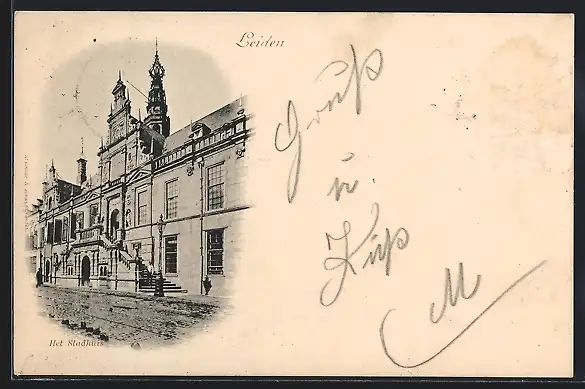 Leiden
Gruß
u.
Kuß
M
Het Stadhuis